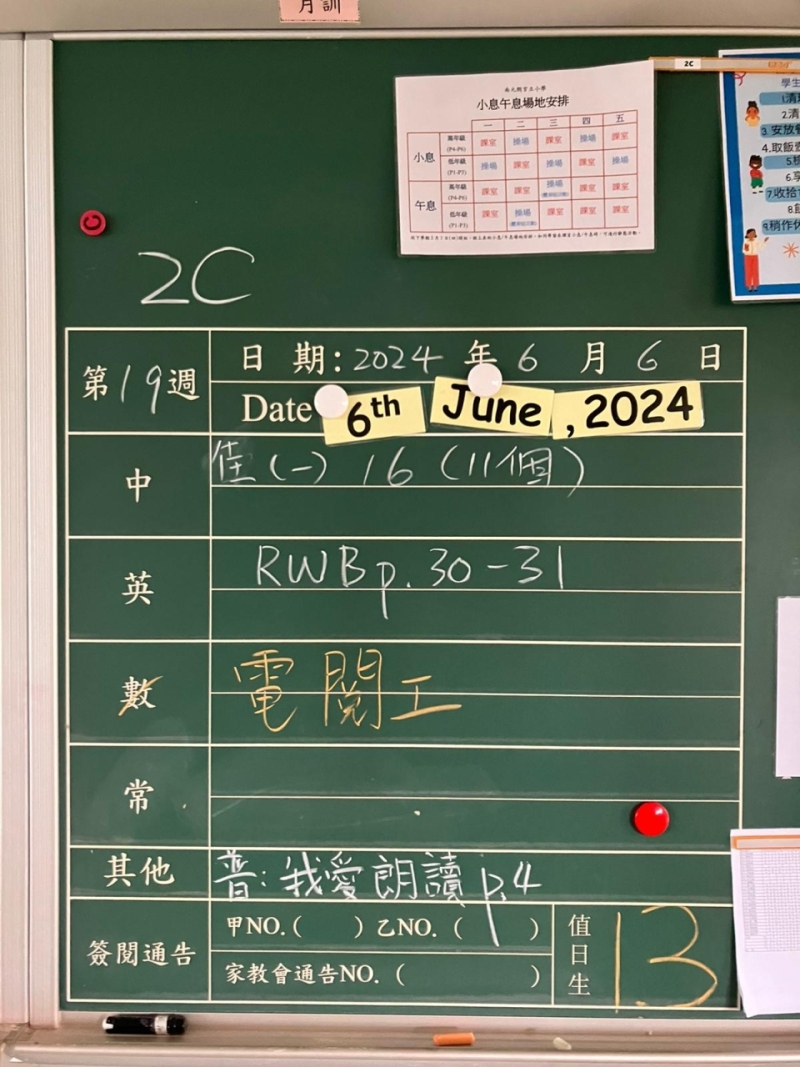 月訓
2C
南元朗官立小學
小息午息場地安排
一 二 三 四 五
小息 高年級 (P4-P6) 課室 操場 課室 操場 課室
低年級 (P1-P3) 操場 課室 操場 課室 操場
午息 高年級 (P4-P6) 課室 課室 操場 課室 課室
低年級 (P1-P3) 課室 操場 課室 課室 課室
學生
1.清
2.清
3.安放
4.取飯
5.
6.享
7.收拾
8.
9.稍作休
C
2C
第19週
日 期: 2024 年 6 月 6 日
Date 6th June , 2024
中 佳(一) 16 (11個)
英 RWB p. 30-31
數 電 閱 工
常
其他 普: 我愛朗讀 p.4
簽閱通告 甲NO.( ) 乙NO. ( )
家教會通告NO. ( )
值日生 13